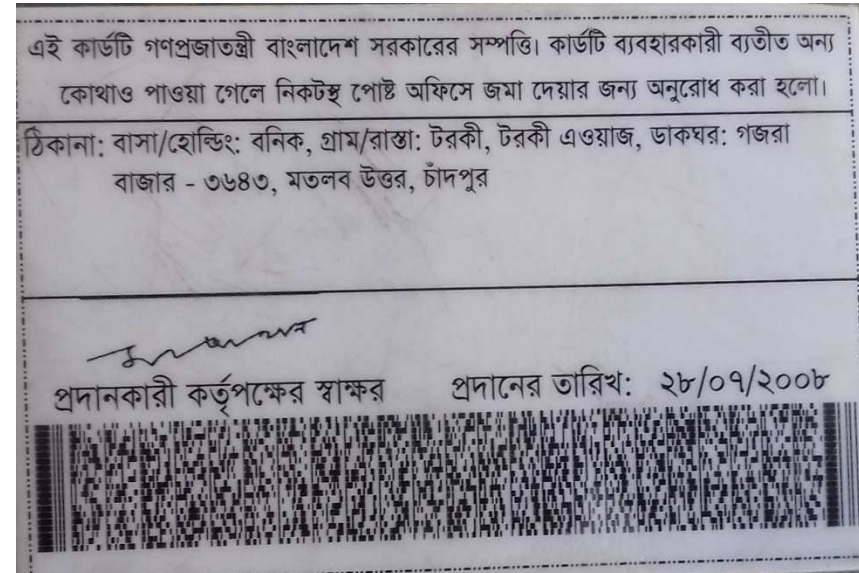 এই কার্ডটি গণপ্রজাতন্ত্রী বাংলাদেশ সরকারের সম্পত্তি। কার্ডটি ব্যবহারকারী ব্যতীত অন্য
কোথাও পাওয়া গেলে নিকটস্থ পোষ্ট অফিসে জমা দেয়ার জন্য অনুরোধ করা হলো।
ঠিকানা: বাসা/হোল্ডিং: বনিক, গ্রাম/রাস্তা: টরকী, টরকী এওয়াজ, ডাকঘর: গজরা
বাজার - ৩৬৪৩, মতলব উত্তর, চাঁদপুর
প্রদানকারী কর্তৃপক্ষের স্বাক্ষর প্রদানের তারিখ: ২৮/০৭/২০০৮